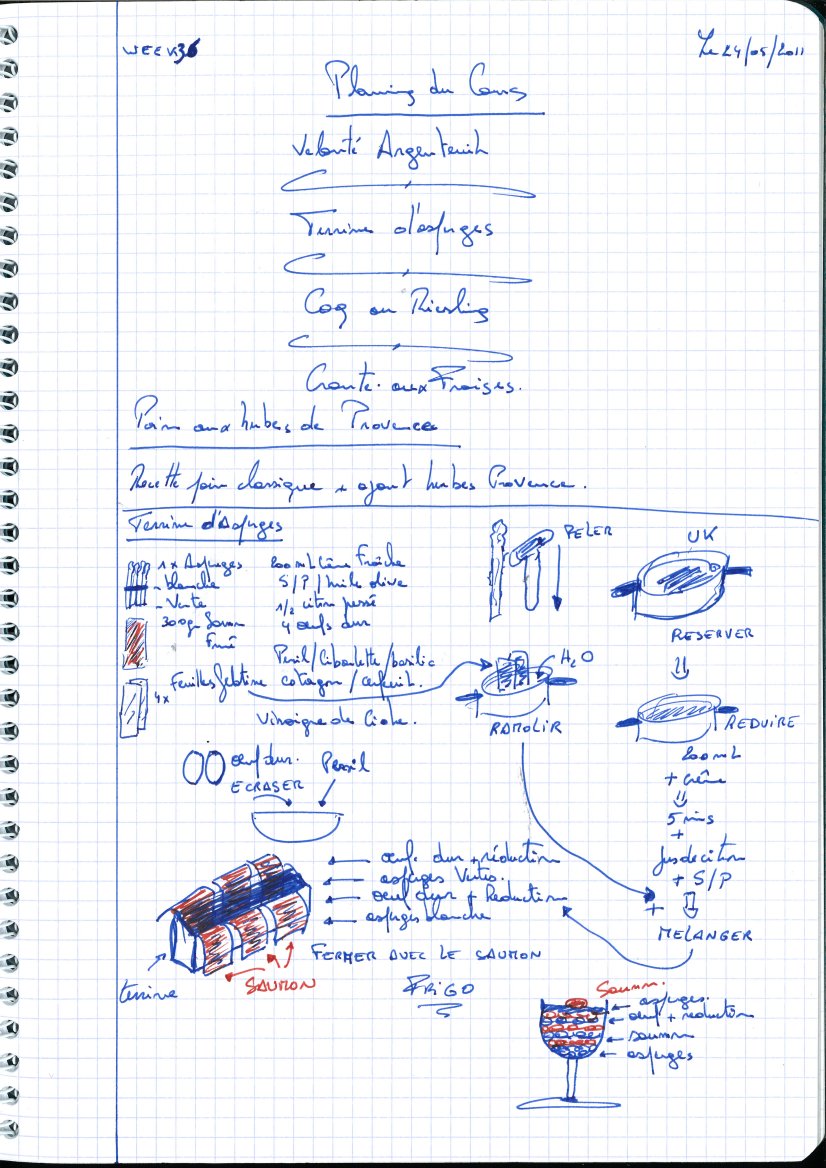 WEEK36
Le 24/05/2011
Planing du Cours
Velouté Argenteuil
Terrine d'asperges
Coq au Riesling
Croute aux Fraises.
Pain aux herbes de Provence
Recette pain classique + ajout herbes Provence.
Terrine d'Asperges
1x Asperges
- blanche
- Verte
300gr Saumon
Fumé
4x Feuilles gélatine
200mL Crème Fraîche
S/P / huile olive
1/2 citron pressé
4 œufs dur
Persil/Ciboulette/basilic
estragon / cerfeuil.
Vinaigre de Cidre.
PELER
UK
RESERVER
H2O
RAMOLIR
REDUIRE
200mL
+ crème
5 mins
+
Jus de citron
+ S/P
+
MELANGER
œuf dur.
ECRASER
Persil
œuf dur + réduction
asperges Vertes.
œuf dur + Réduction
asperges blanche
FERMER AVEC LE SAUMON
terrine
SAUMON
FRIGO
Saumon.
asperges.
œuf + réduction
saumon
asperges